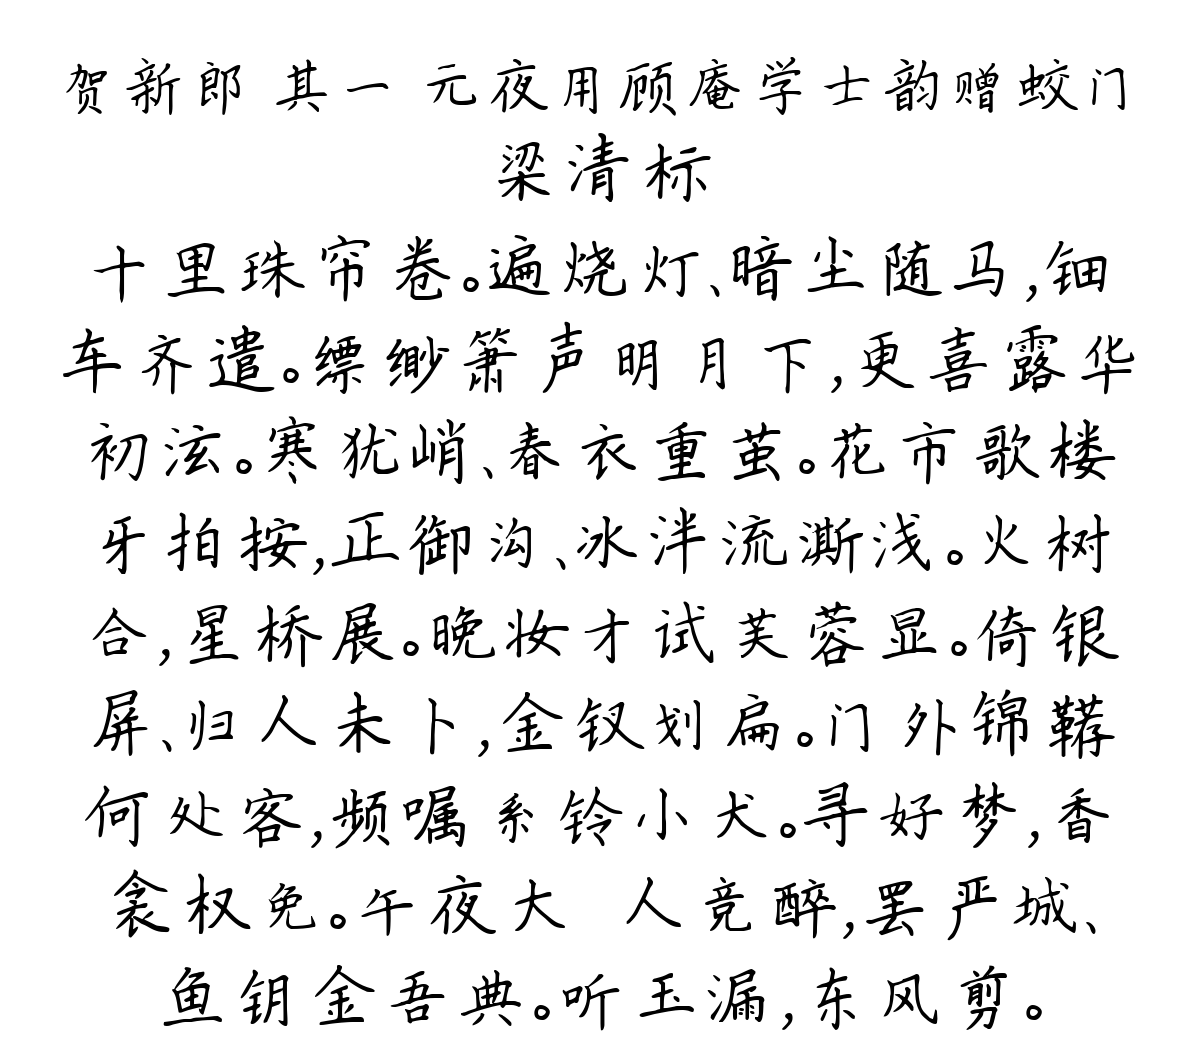 贺新郎 其一 元夜用顾庵学士韵赠蛟门
梁清标
十里珠帘卷。遍烧灯、暗尘随马,钿
车齐遣。缥缈箫声明月下,更喜露华
初泫。寒犹峭、春衣重茧。花市歌楼
牙拍按,正御沟、冰泮流澌浅。火树
合,星桥展。晚妆才试芙蓉显。倚银
屏、归人未卜,金钗划扁。门外锦鞯
何处客,频嘱系铃小犬。寻好梦,香
衾权免。午夜大 人竞醉,罢严城、
鱼钥金吾典。听玉漏,东风剪。